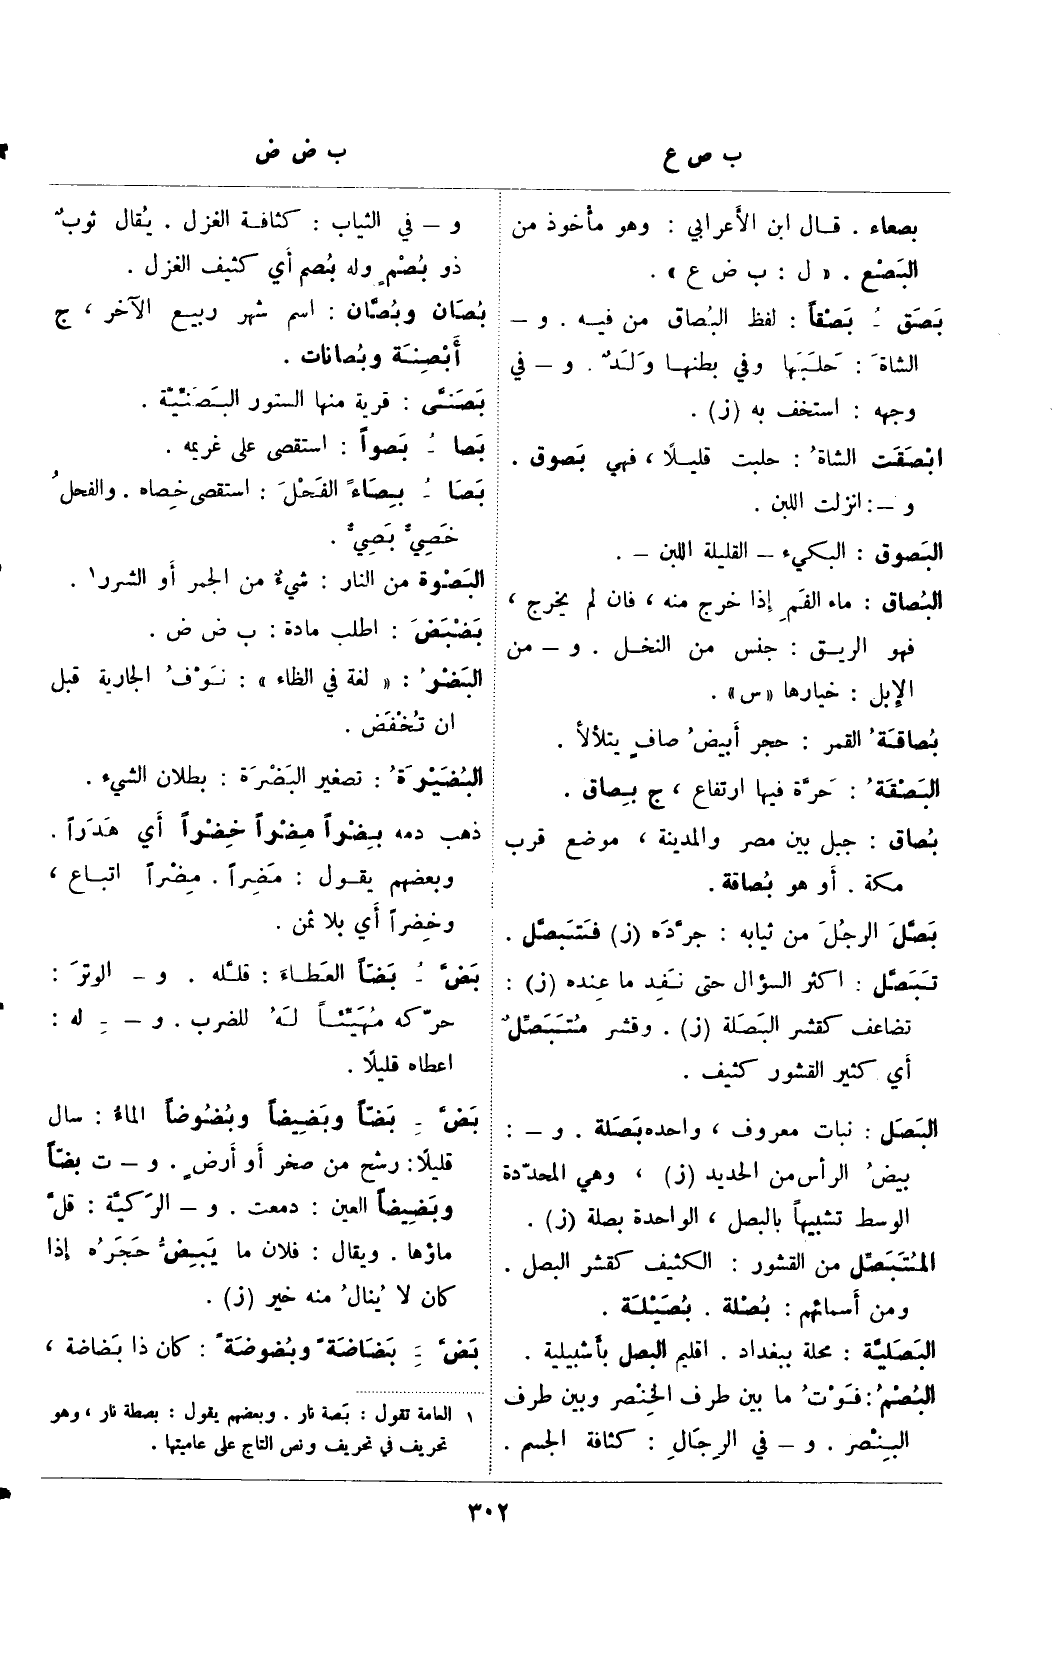 ب ص ع
ب ض ض
بصعاء . قال ابن الأعرابي : وهو مأخوذ من
البَصْع . « ل : ب ض ع » .
بَصَق ـُ بَصْقاً : لفظ البُصاق من فيه . و –
الشاةَ : حَلَبَها وفي بطنها وَلَدٌ . و – في
وجهه : استخف به (ز) .
ابْصَقَت الشاةُ : حلبت قليلًا ، فهي بَصوق .
و – : انزلت اللبن .
البَصوق : البكيء – القليلة اللبن – .
البُصاق : ماء الفَمِ إذا خرج منه ، فان لم يخرج ،
فهو الريق : جنس من النخل . و – من
الإبل : خيارها «س» .
بُصاقَةُ القمر : حجر أبيضُ صافٍ يتلألأ .
البَصْقَةُ : حَرَّة فيها ارتفاع ، ج بِصاق .
بُصاق : جبل بين مصر والمدينة ، موضع قرب
مكة . أو هو بُصاقة .
بَصَّلَ الرجُلَ من ثيابه : جرَّدَه (ز) فَتَبَصَّل .
تَبَصَّل : اكثر السؤال حتى نَفِد ما عِنده (ز) :
تضاعف كقشر البَصَلة (ز) . وقشر مُتَبَصِّلٌ
أي كثير القشور كثيف .
البَصَل : نبات معروف ، واحده بَصَلة . و – :
بيضُ الرأس من الحديد (ز) ، وهي المحدّدة
الوسط تشبيهاً بالبصل ، الواحدة بصلة (ز) .
المُتَبَصِّل من القشور : الكثيف كقشر البصل .
ومن أسمائهم : بُصْلة . بُصَيْلة .
البَصَليَّة : محلة ببغداد . اقليم البصل بأشبيلية .
البُصْمُ : فَوْتُ ما بين طرف الخِنْصر وبين طرف
البِنْصر . و – في الرِجَالِ : كثافة الجسم .
و – في الثياب : كثافة الغزل . يُقال ثوبٌ
ذو بُصْمٍ وله بُصم أي كثيف الغزل .
بُصَان وبُصَّان : اسم شهر ربيع الآخر ، ج
أَبْصِنَة وبُصانات .
بَصَنَّى : قرية منها الستور البَصَنّيّة .
بَصا ـُ بَصواً : استقصى على غريمه .
بَصَا ـُ بِصَاءً الفَحْلَ : استقصى خِصاه . والفحلُ
خَصِيٌّ بَصِيٌّ .
البَصْوة من النار : شيءٌ من الجمر أو الشرر١ .
بَضْبَضَ : اطلب مادة : ب ض ض .
البَضْرُ : « لغة في الظاء » : نَوْفُ الجارية قبل
ان تُخْفَض .
البُضَيْرَةُ : تصغير البَضْرَة : بطلان الشيء .
ذهب دمه بِضْراً مِضْراً خِضْراً أي هَدَراً .
وبعضهم يقول : مَضِراً . مِضْراً اتباع ،
وخِضراً أي بلا ثمن .
بَضَّ ـُ بَضّاً العَطاءَ : قلَّله . و – الوترَ :
حرّكه مُهَيّئاً لَهُ للضرب . و – ـِ له :
اعطاه قليلًا .
بَضَّ ـِ بَضّاً وبَضِيضاً وبُضُوضاً الماءُ : سال
قليلًا : رشح من صخر أو أرضٍ . و – ت بضّاً
وبَضِيضاً العين : دمعت . و – الرَكيَّة : قلَّ
ماؤها . ويقال : فلان ما يَبِضُّ حَجَرُه إذا
كان لا يُنالُ منه خير (ز) .
بَضَّ ـِ بَضَاضَةً وبُضوضَةً : كان ذا بَضاضة ،
١ العامة تقول : بَصة نار . وبعضهم يقول : بصطة نار ، وهو
تحريف في تحريف ونص التاج على عاميتها .
٣٠٢